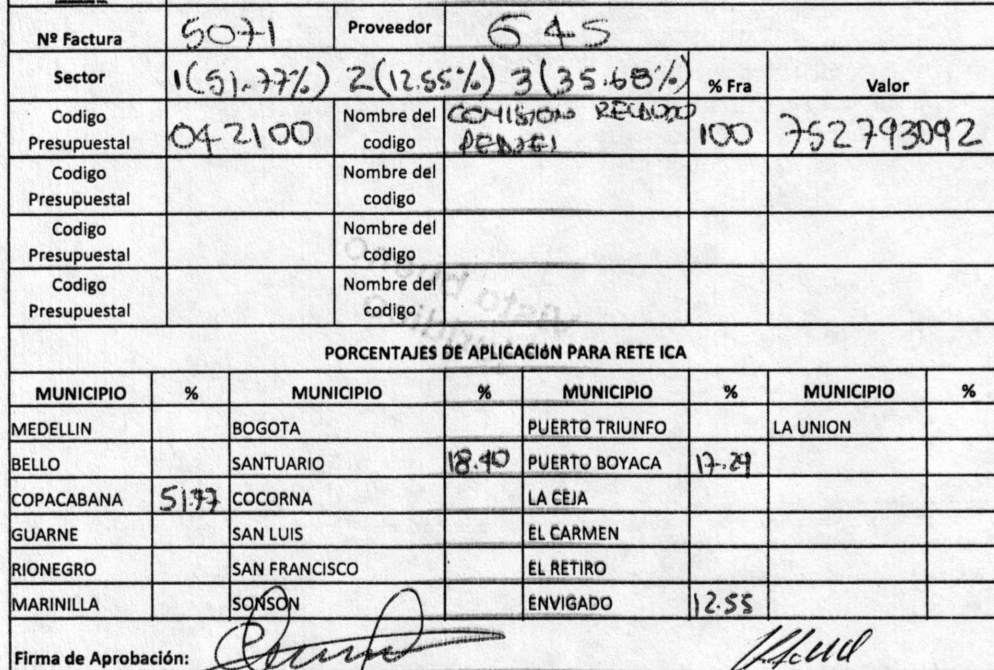 Nº Factura 5071 Proveedor 645
Sector 1(51.77%) 2(12.55%) 3(35.68%) % Fra Valor
Codigo Presupuestal 042100 Nombre del codigo COMISION RECAUDO PEAJE 100 752793092
Codigo Presupuestal Nombre del codigo
Codigo Presupuestal Nombre del codigo
Codigo Presupuestal Nombre del codigo
PORCENTAJES DE APLICACIÓN PARA RETE ICA
MUNICIPIO % MUNICIPIO % MUNICIPIO % MUNICIPIO %
MEDELLIN BOGOTA PUERTO TRIUNFO LA UNION
BELLO SANTUARIO 18.40 PUERTO BOYACA 17.29
COPACABANA 51.77 COCORNA LA CEJA
GUARNE SAN LUIS EL CARMEN
RIONEGRO SAN FRANCISCO EL RETIRO
MARINILLA SONSON ENVIGADO 12.55
Firma de Aprobación: